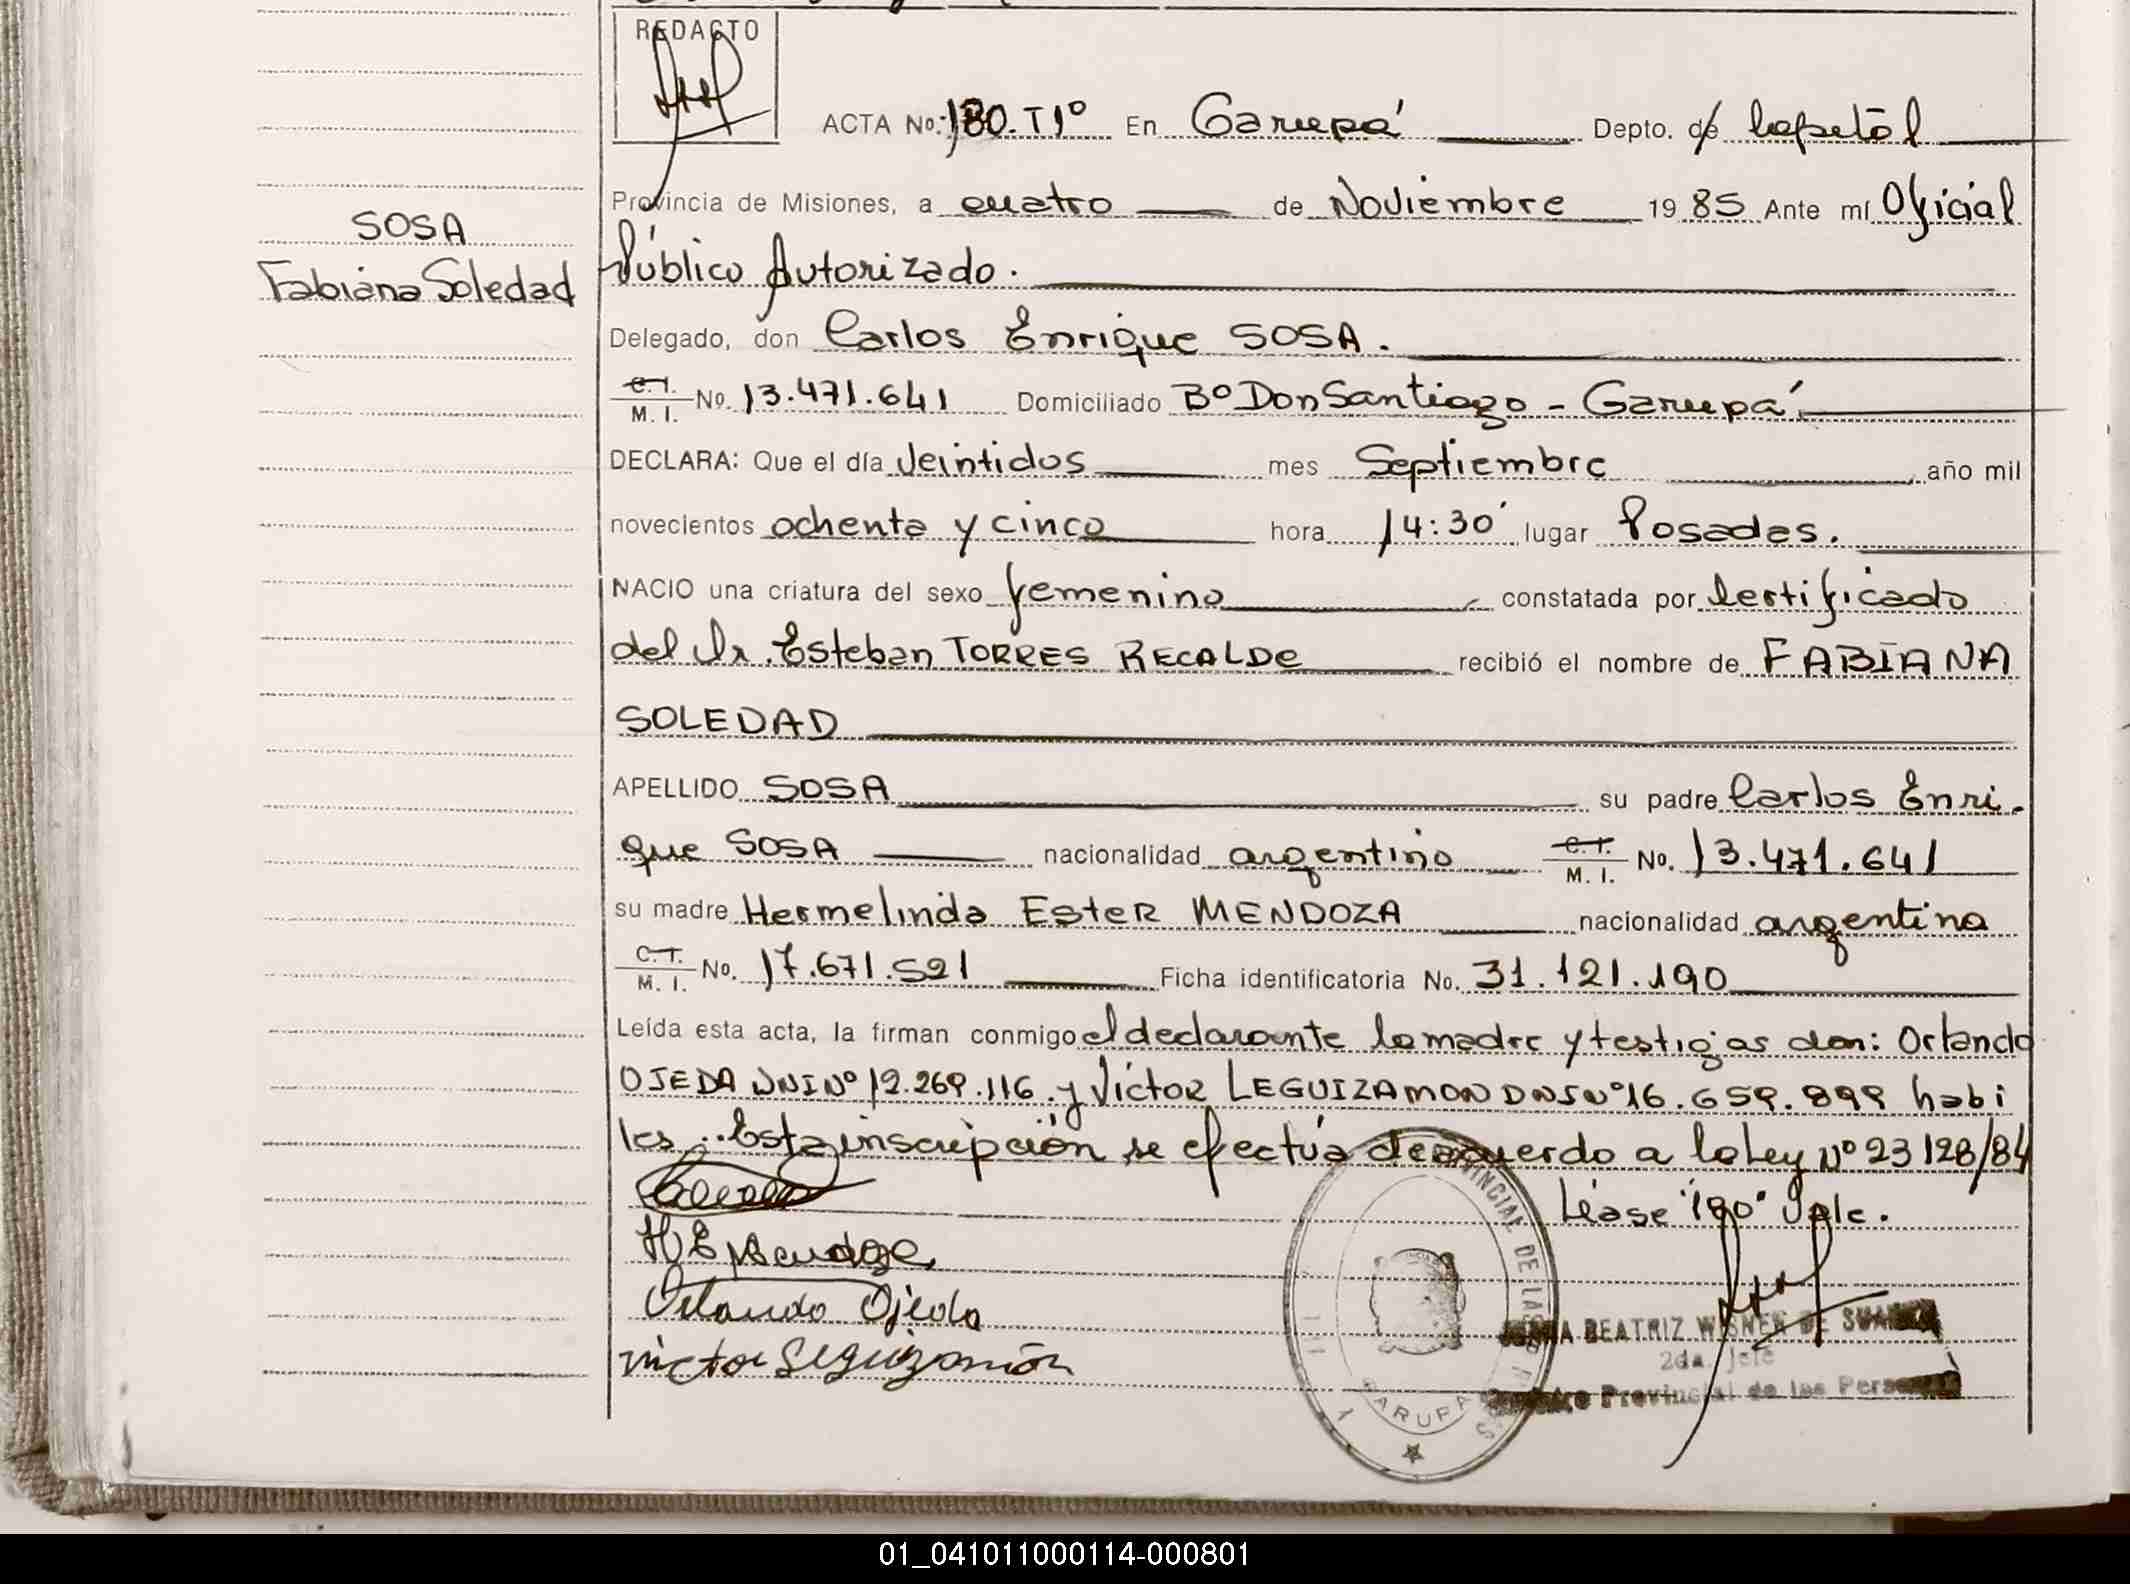 REDACTO
ACTA No. 180. T1º En Garupá Depto. de/ Capital
Provincia de Misiones, a cuatro de Noviembre 1985 Ante mí Oficial
SOSA
Público Autorizado.
Fabiana Soledad
Delegado, don Carlos Enrique SOSA.
C. I. / M. I. No. 13.471.641 Domiciliado Bº Don Santiago - Garupá
DECLARA: Que el día veintidos mes Septiembre año mil
novecientos ochenta y cinco hora 14:30' lugar Posadas.
NACIO una criatura del sexo femenino constatada por Certificado
del Dr. Esteban TORRES RECALDE recibió el nombre de FABIANA
SOLEDAD
APELLIDO SOSA su padre Carlos Enri-
que SOSA nacionalidad argentino C. I. / M. I. No. 13.471.641
su madre Hermelinda Ester MENDOZA nacionalidad argentina
C. I. / M. I. No. 17.671.521 Ficha identificatoria No. 31.121.190
Leída esta acta, la firman conmigo el declarante la madre y testigos don: Orlando
OJEDA DNI Nº 12.269.116 y Victor LEGUIZAMON DNI Nº 16.659.899 habi
les.. Esta inscripción se efectúa de acuerdo a la Ley Nº 23128/84
Léase "180" Vale.
H E Mendoza
Orlando Ojeda
Victor Leguizamón
BEATRIZ WISNER DE
2da. Jefe
Provincial de las Personas
PROVINCIAL DE LAS
GARUPA
01_041011000114-000801